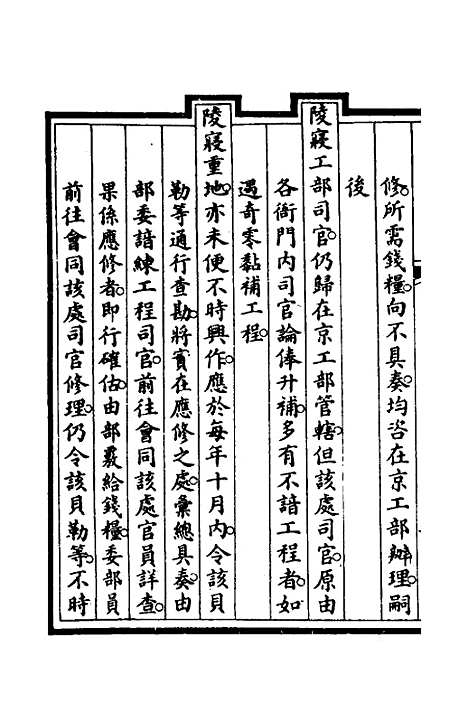 修。所需錢糧。向不具奏。均咨在京工部辦理。嗣
後
陵寢工部司官。仍歸在京工部管轄。但該處司官。原由
各衙門內司官論俸升補。多有不諳工程者。如
遇奇零黏補工程。
陵寢重地。亦未便不時興作。應於每年十月內。令該貝
勒等通行查勘。將實在應修之處。彙總具奏。由
部委諳練工程司官。前往會同該處官員詳查。
果係應修者。即行確估。由部覈給錢糧。委部員
前往會同該處司官修理。仍令該貝勒等。不時